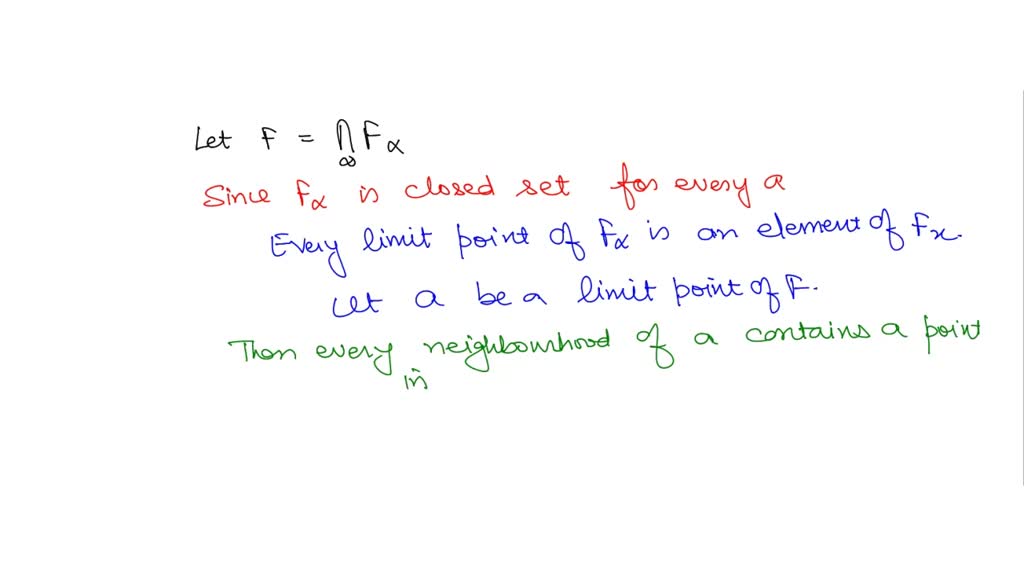 Let F = ⋂ Fα
∞
Since Fα is closed set for every a
Every limit point of Fα is an element of Fx.
Let a be a limit point of F.
Then every neighbourhood of a contains a point
in